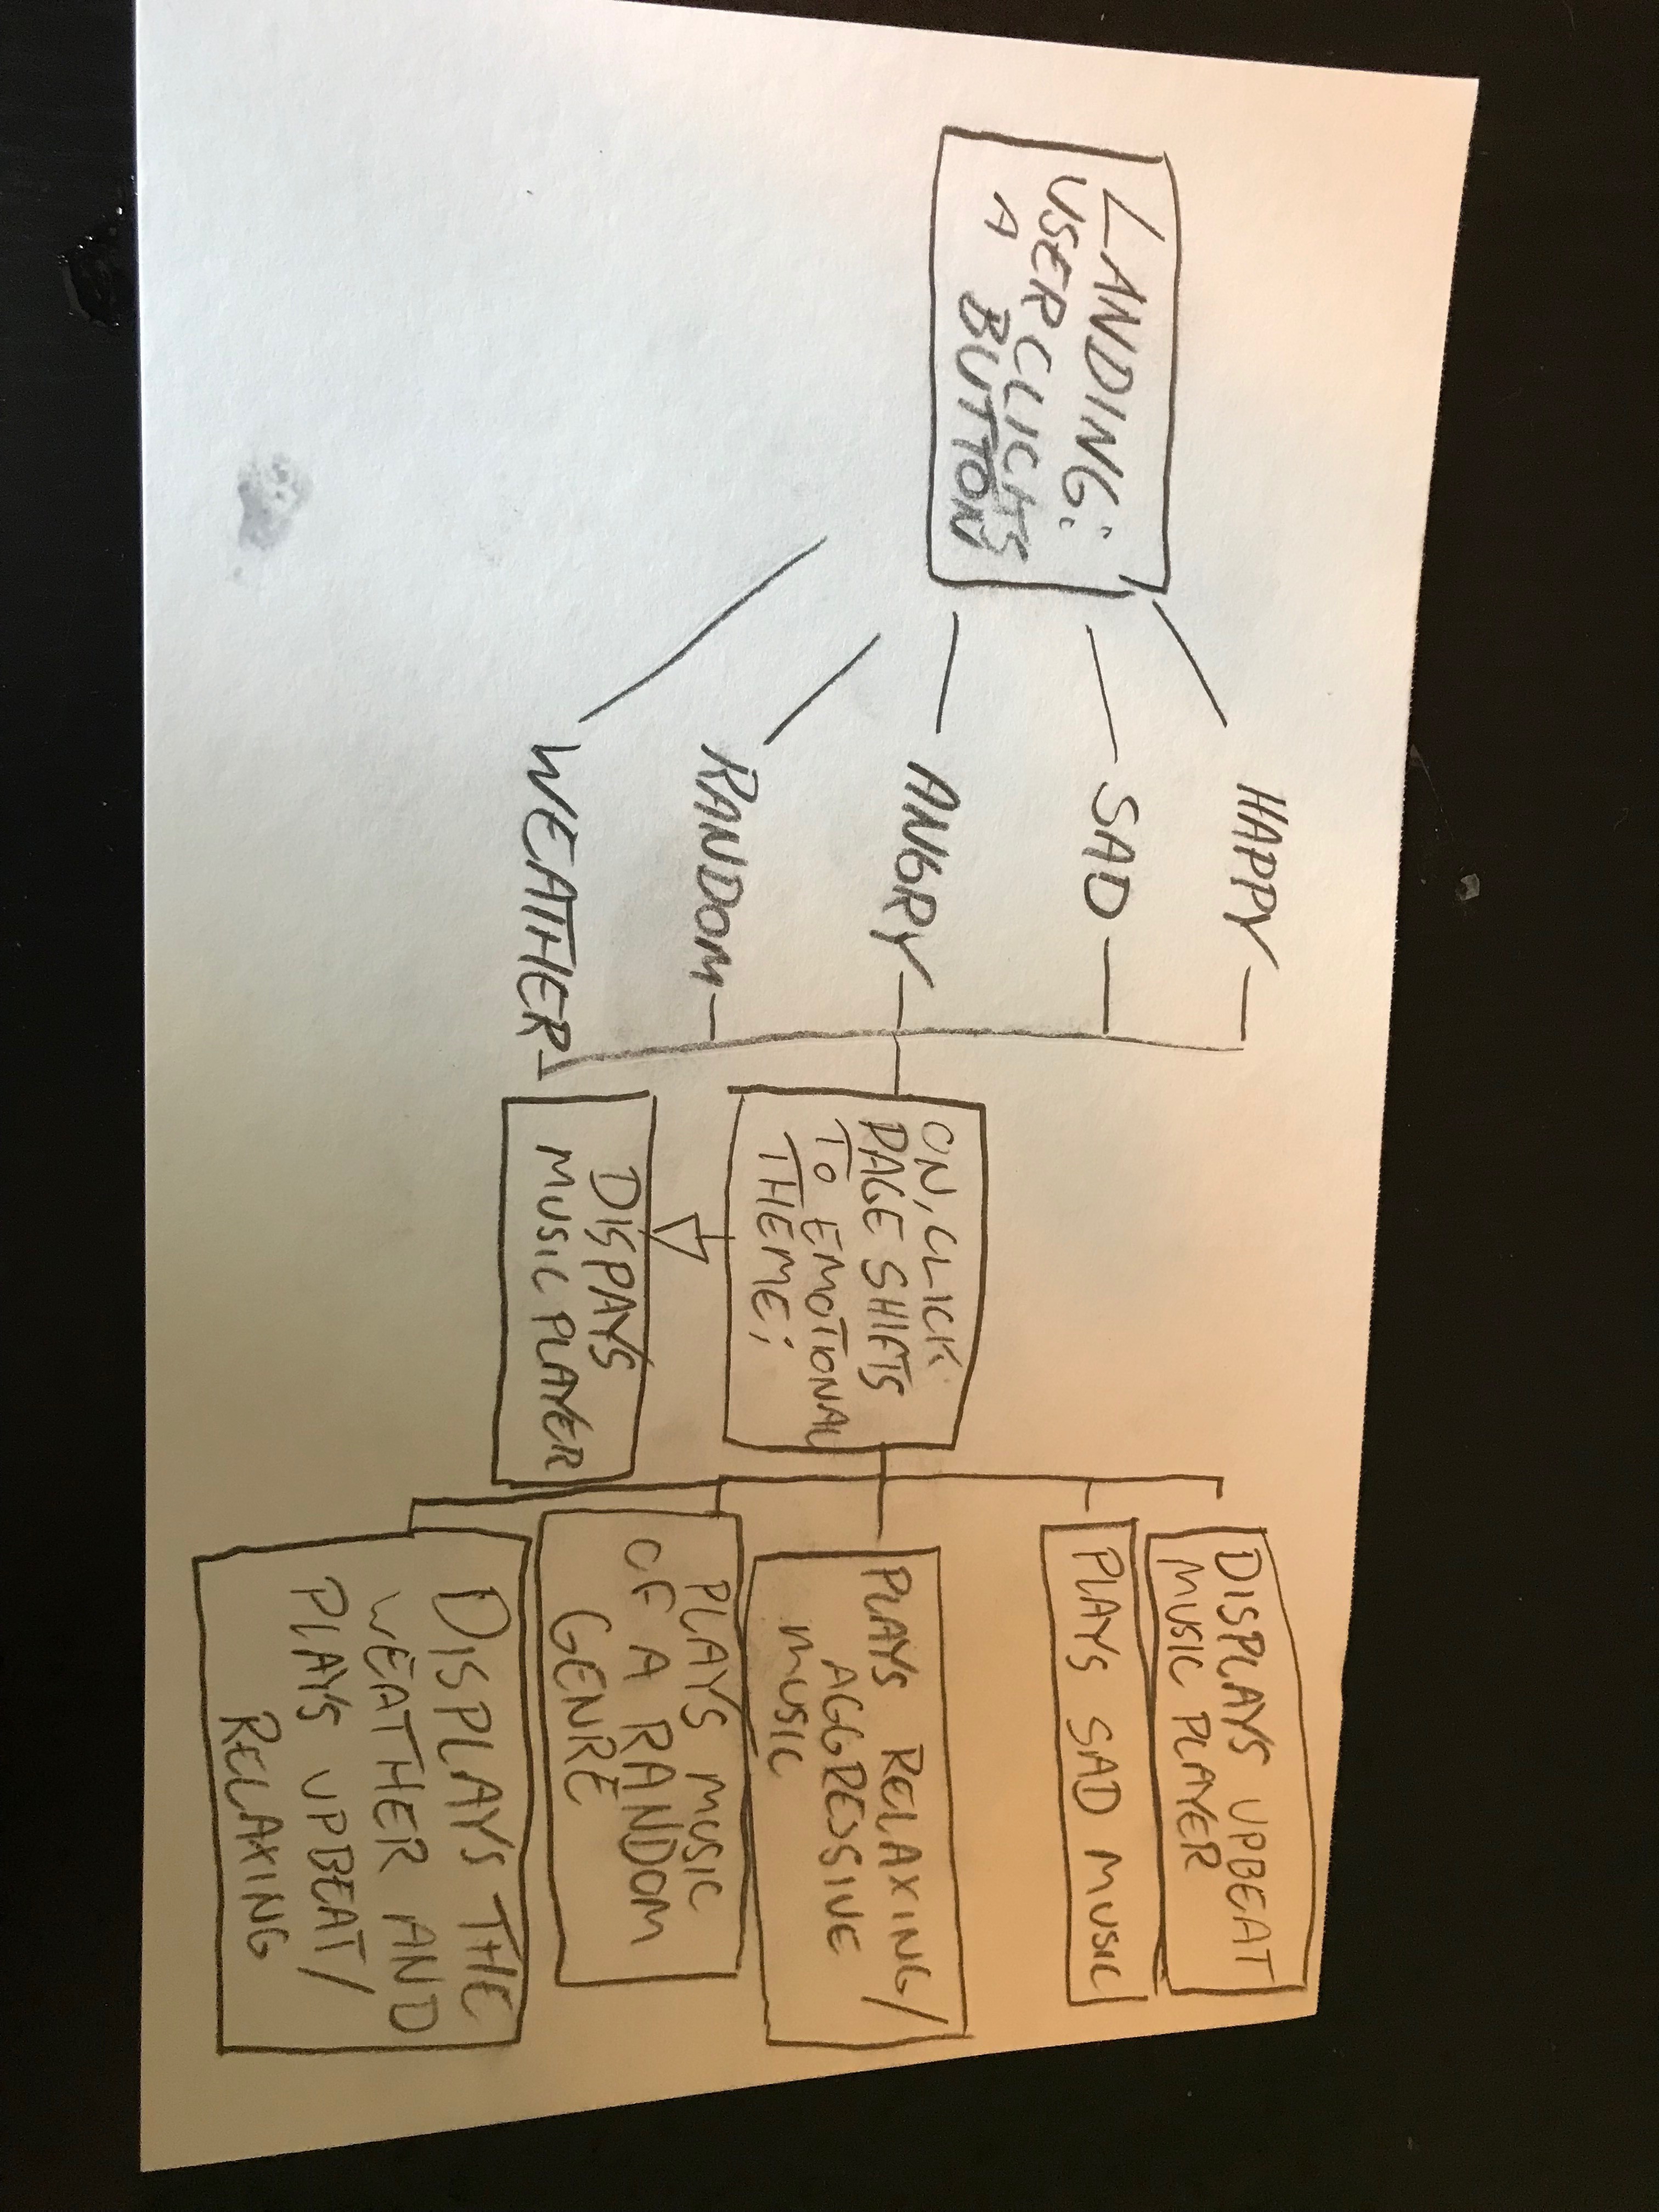 LANDING:
USER CLICKS
A BUTTON
HAPPY
SAD
ANGRY
RANDOM
WEATHER
ON, CLICK
PAGE SHIFTS
TO EMOTIONAL
THEME;
DISPAYS
MUSIC PLAYER
DISPLAYS UPBEAT
MUSIC PLAYER
PLAYS SAD MUSIC
PLAYS RELAXING/
AGGRESSIVE
MUSIC
PLAYS MUSIC
OF A RANDOM
GENRE
DISPLAYS THE
WEATHER AND
PLAYS UPBEAT/
RELAXING